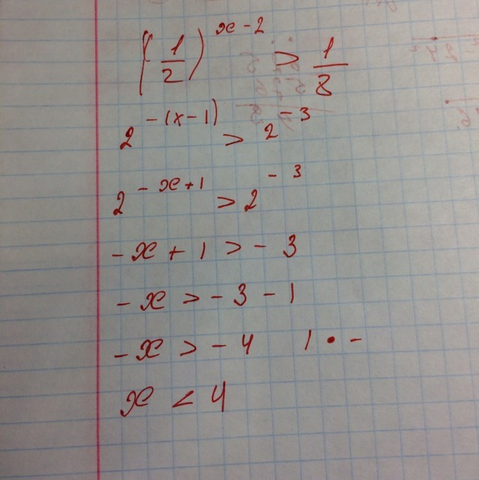 (-1/2)^x-2 > 1/8
2^-(x-1) > 2^-3
2^-x+1 > 2^-3
-x + 1 > -3
-x > -3 -1
-x > -4 | • -
x < 4